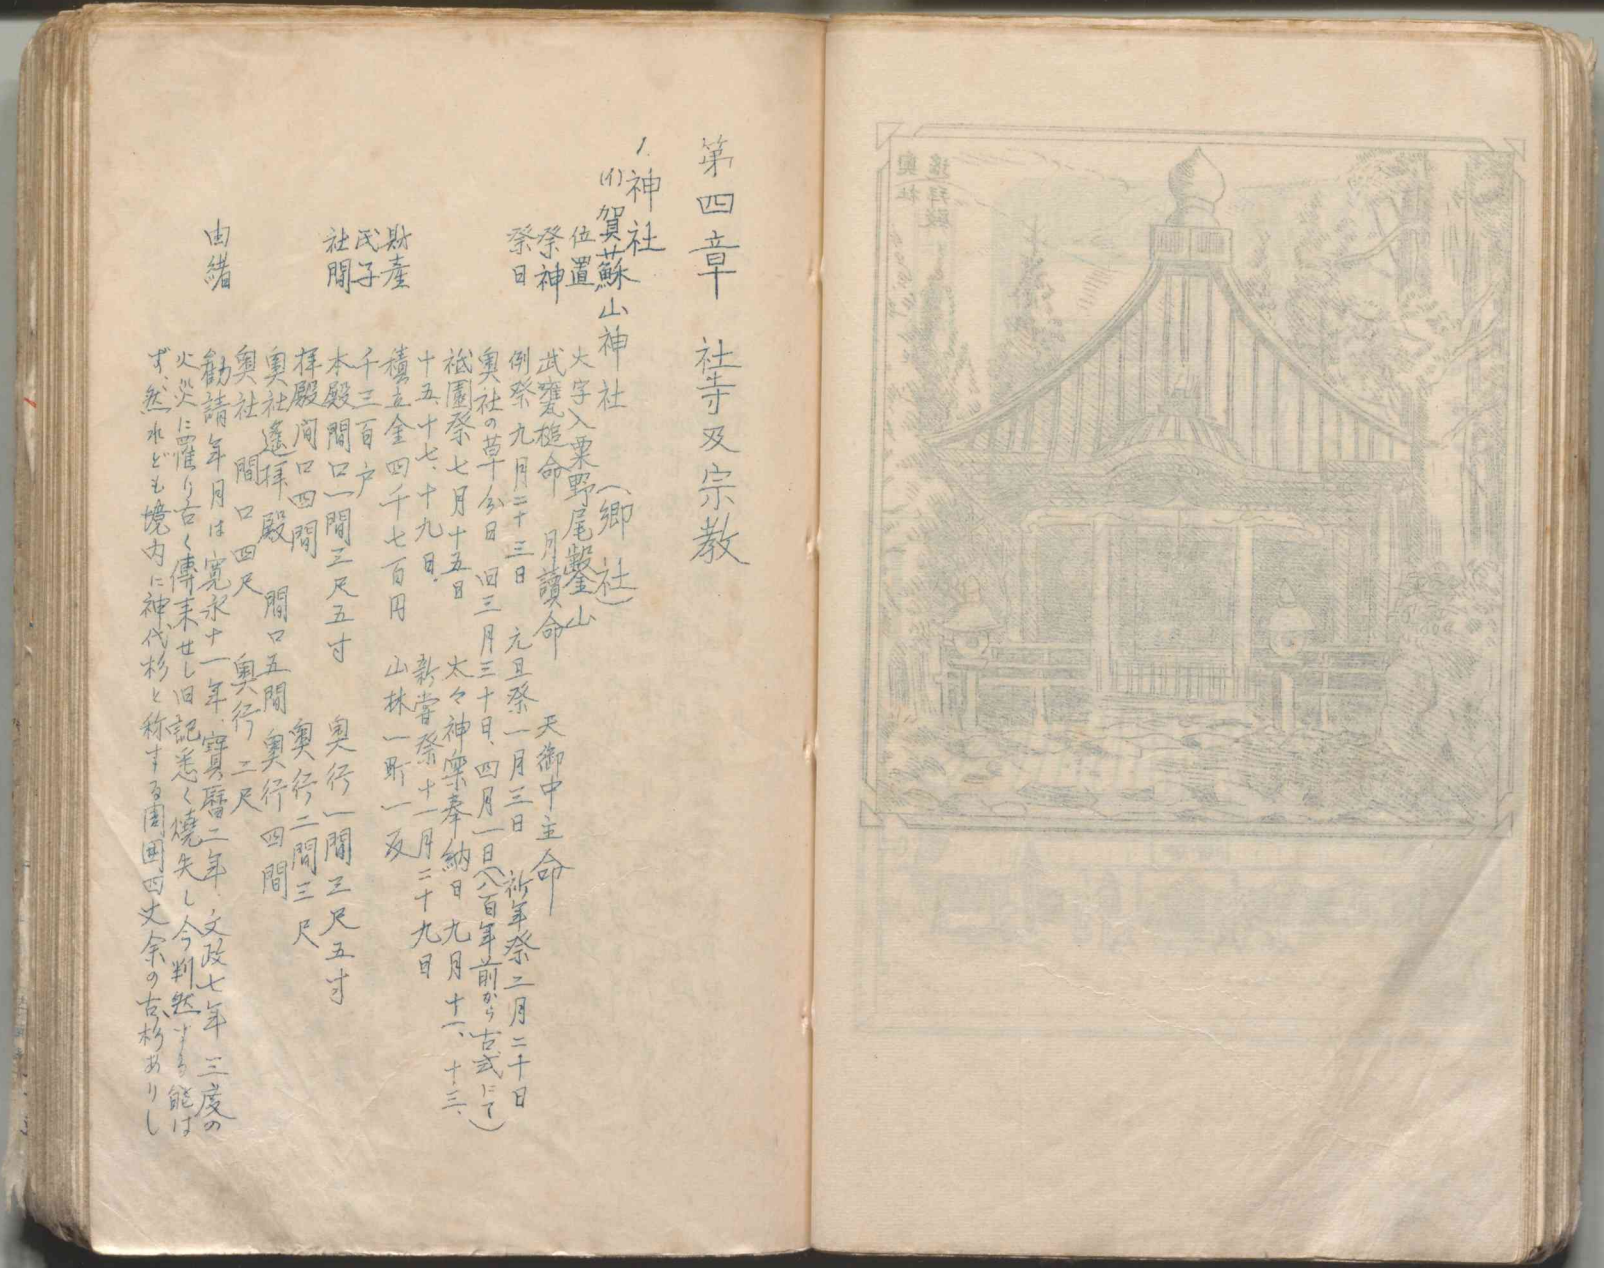 第四章　社寺及宗教
1. 神社
(イ) 賀蘇山神社　(郷社)
位置　大字入粟野尾鑿山
祭神　武甕槌命　月讀命　天御中主命
祭日　例祭九月二十三日　元旦祭一月三日　祈年祭二月二十日
奥社の草分日　旧三月三十日、四月一日(八百年前から古式にて)
祗園祭七月十五日　太々神楽奉納日　九月十一、十三、
十五、十七、十九日、　新嘗祭十一月二十九日
財産　積立金四千七百円　山林一町一反
氏子　千三百戸
社間　本殿間口一間三尺五寸　奥行一間三尺五寸
拝殿间口四間　奥行二間三尺
奥社遙拝殿　間口五間　奥行四間
奥社　間口四尺　奥行二尺
由緒　勧請年月は寛永十一年、寶暦二年、文政七年三度の
火災に罹り古く傳来せし旧記悉く燒失し今判然する能は
ず、然れども境内に神代杉と称する周囲四丈余の古杉ありし
奥社
遙拝殿